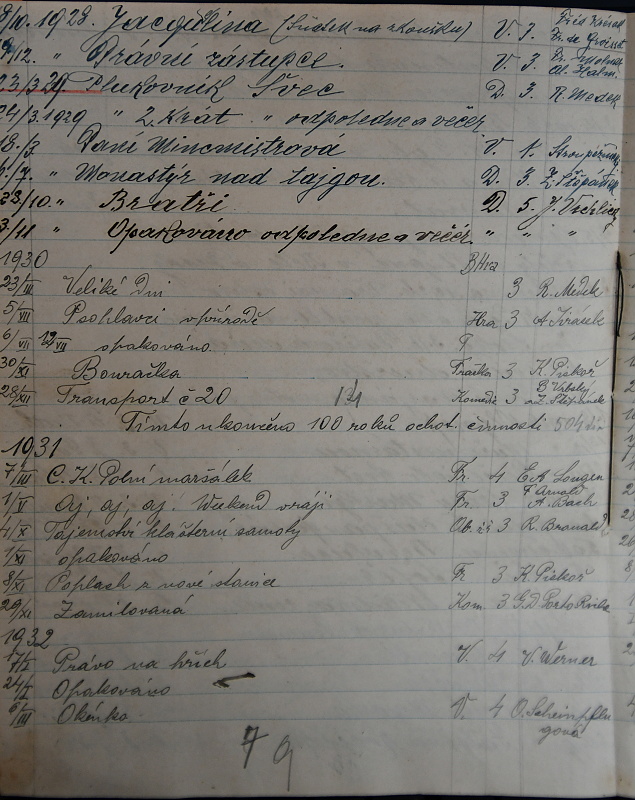 9/10. 1928. Jacquelina (Sudek na zkoušku) V. 3.
9/12. " Právní zástupce. V. 3. Al. Halm.
23/3 29. Plukovník Švec D. 3. R. Medek
24/3. 1929 " 2. Krát. " odpoledne a večer
18./3 Paní Mincmistrová V. 1.
1./7. " Monastýr nad tajgou. D. 3. Z. Štěpánek
28/10. " Bratři. D. 5. J. Vrchlický
3/11 " Opakováno odpoledne a večer " " "
1930
23/III Veliké Dni 3 R. Medek
5/VII Psohlavci v přírodě Hra 3 A Jirásek
6/VII 12/VII opakováno
30/XI Bouračka Fraška 3 K. Piskoř
28/XII Transport č 20 Komedie 3
Tímto ukončeno 100 roků ochot. činnosti 504
1931
7/III C. K. Polní maršálek Fr. 4 E A Longen
1/V Aj, aj, aj. Weekend v ráji Fr. 3 F Arnold A. Bach
4/X Tajemství klášterní samoty 3
1/XI opakováno
8/XI Poplach z nové stanice Fr 3 K. Piskoř
29/XI Zamilovaná Kom. 3 G. D. Porto Riche
1932
Právo na hřích V. 4 V. Werner
24/I Opakováno
6/III Okénko V. 4 O. Scheinpflu
gová